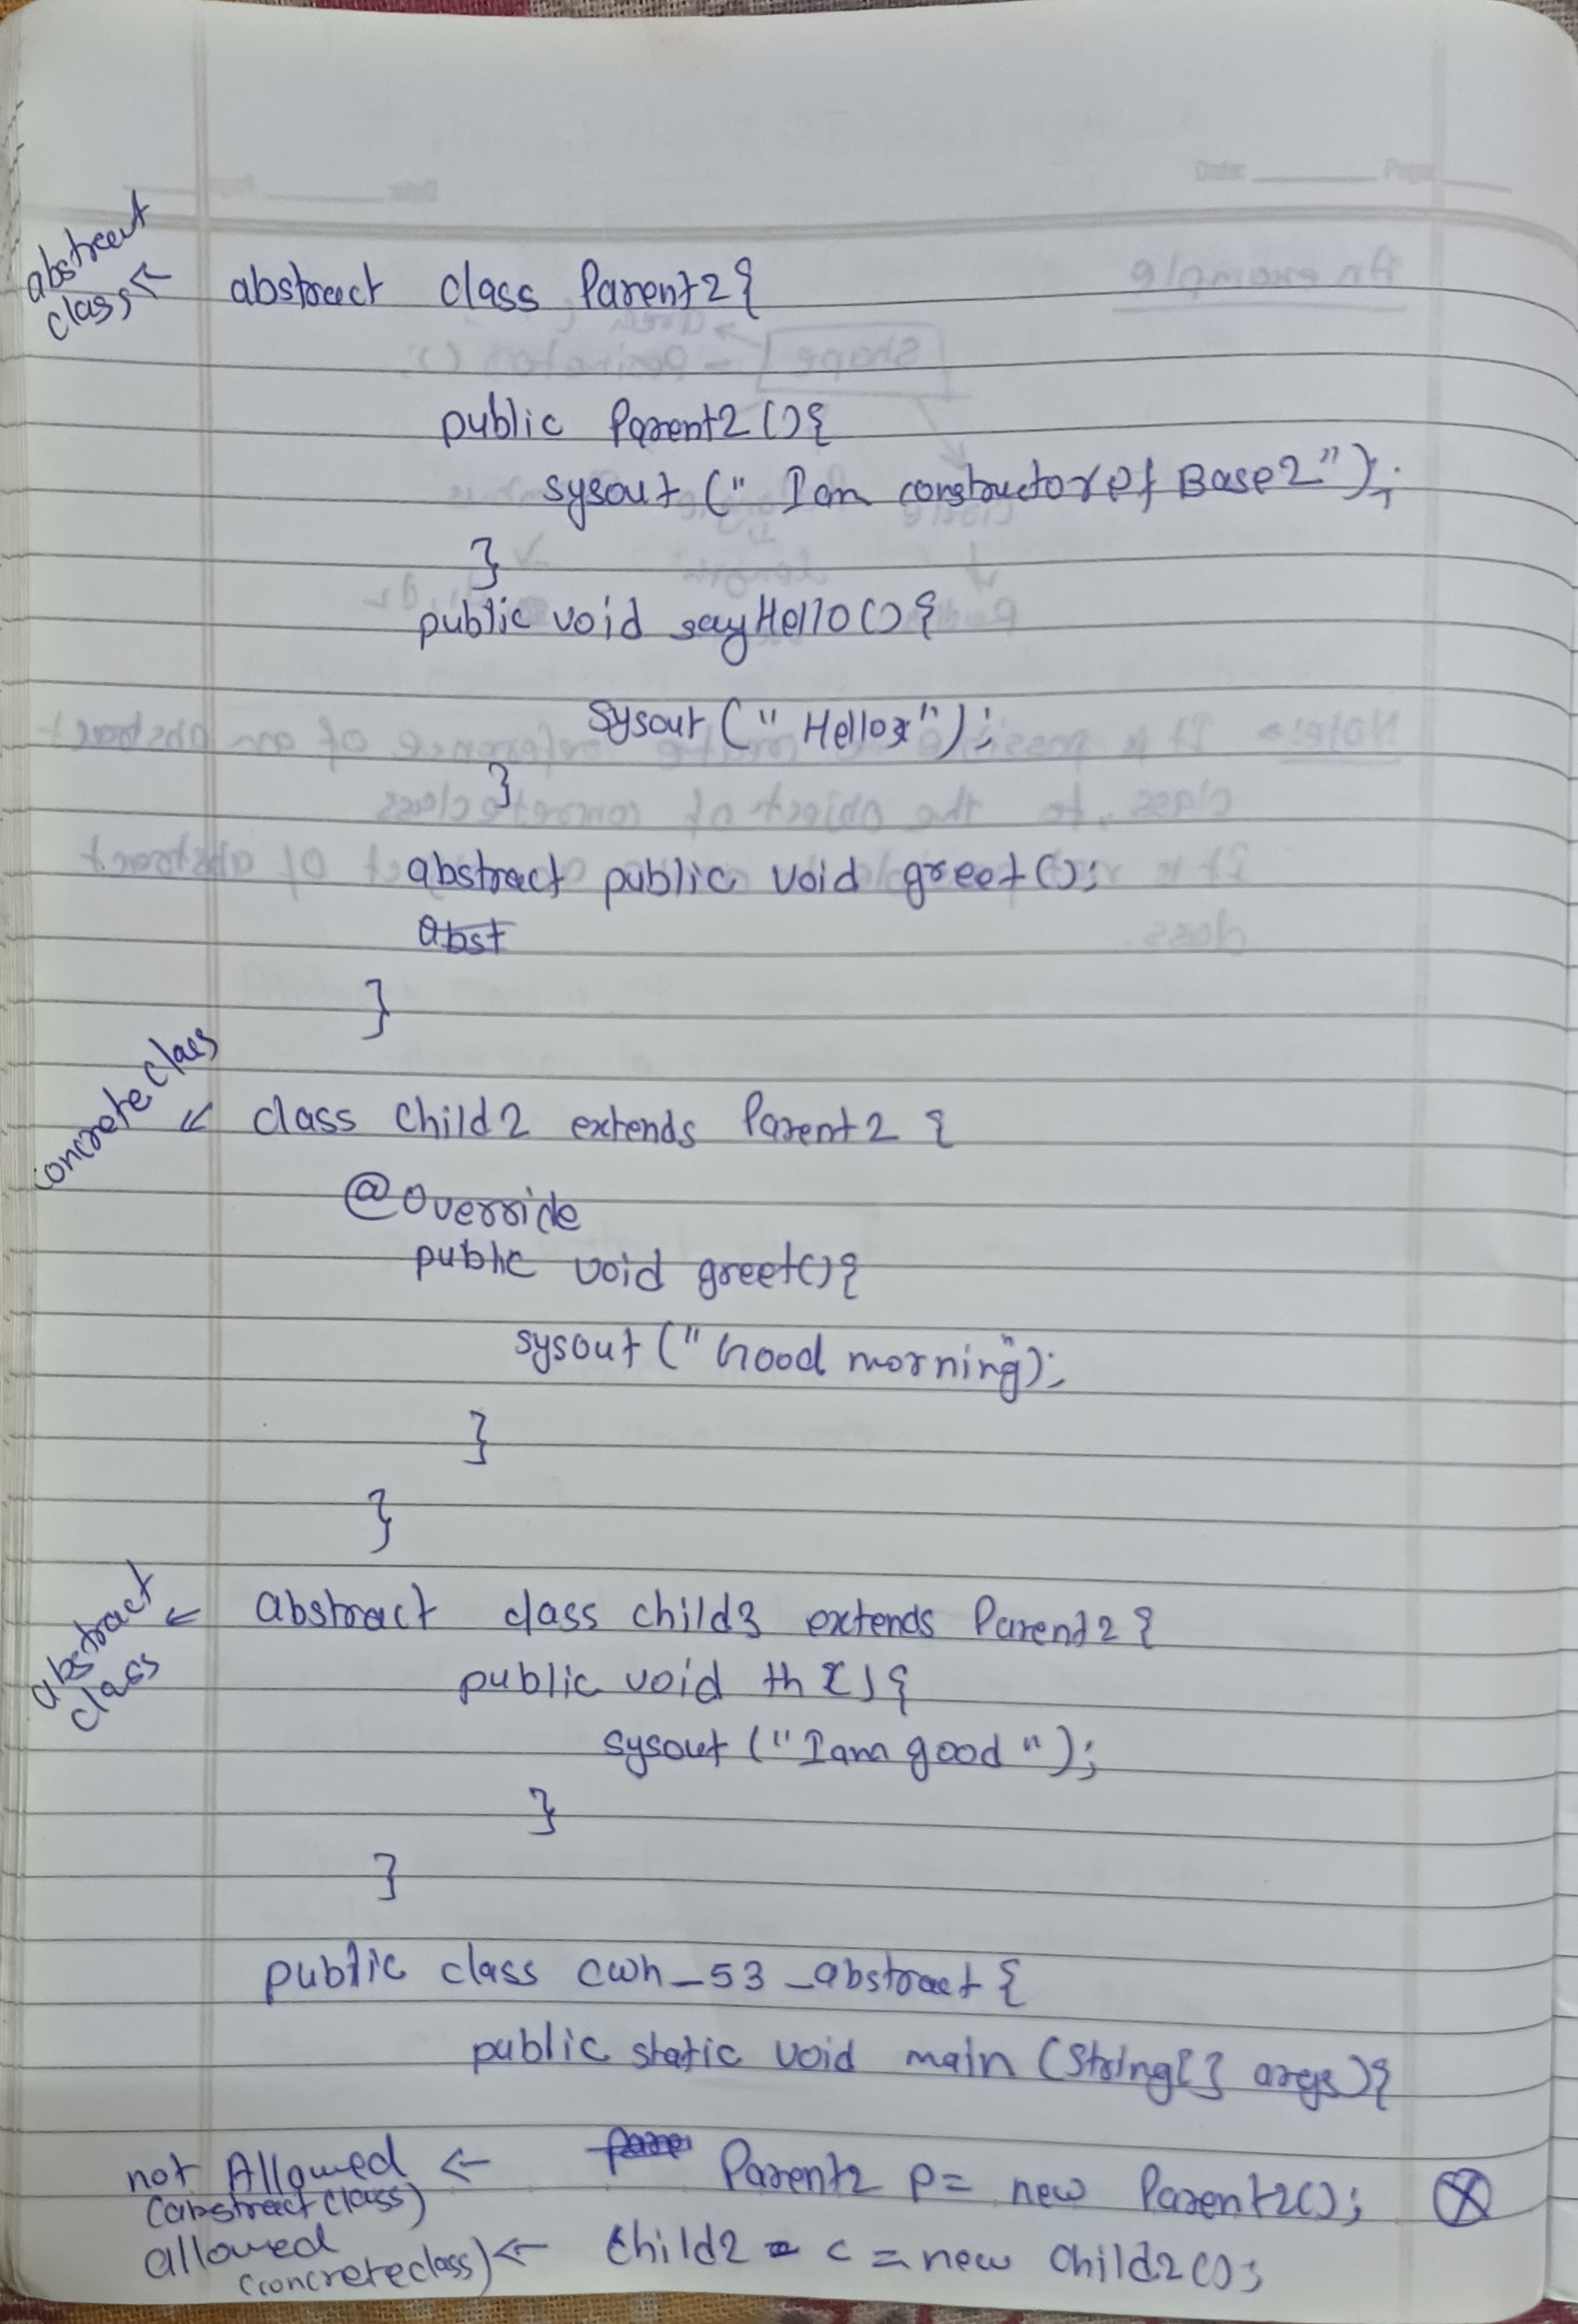 abstract class Parent2{
abstract class ←
public Parent2(){
sysout (" I am constructor of Base2");
}
public void sayHello(){
sysout (" Hello");
}
abstract public void greet();
abst
}
concrete class ← class Child2 extends Parent2 {
@Override
public void greet(){
sysout ("Good morning");
}
}
abstract class ← abstract class child3 extends Parent2 {
public void th(){
sysout ("I am good");
}
}
public class cwh_53_abstract {
public static void main (String[] args){
not Allowed (abstract class) ← Parent2 p= new Parent2(); ⊗
allowed (concrete class) ← Child2 c = new Child2();